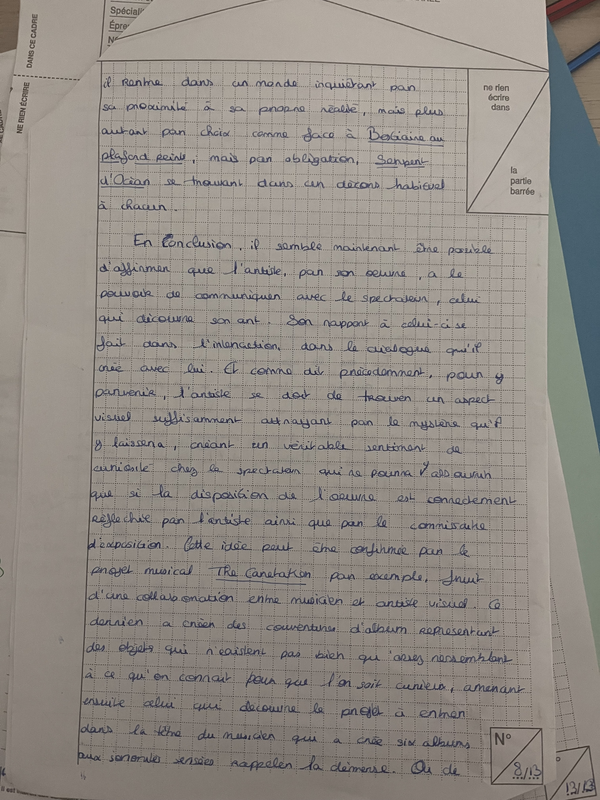 DANS CE CADRE
NE RIEN ÉCRIRE
Spéciali
Épre
N°
ne rien
écrire
dans
la
partie
barrée
il rentre dans un monde inquiétant par
sa proximité à sa propre réalité, mais plus
autant par choix comme face à Bestiaire au
plafond peint, mais par obligation, Serpent
d'Océan se trouvant dans un décors habituel
à chacun.
En Conclusion, il semble maintenant être possible
d'affirmer que l'artiste, par son oeuvre, a le
pouvoir de communiquer avec le spectateur, celui
qui découvre son art. Son rapport à celui-ci se
fait dans l'interaction, dans le dialogue qu'il
crée avec lui. Et comme dit précédemment, pour y
parvenir, l'artiste se doit de trouver un aspect
visuel suffisamment attrayant par le mystère qu'il
y laissera, créant un véritable sentiment de
curiosité chez le spectateur qui ne pourra
que si la disposition de l'oeuvre est correctement
réfléchie par l'artiste ainsi que par le commissaire
d'exposition. Cette idée peut être confirmée par le
projet musical The Caretaker par exemple, fruit
d'une collaboration entre musicien et artiste visuel. Ce
dernier a créer des couvertures d'album représentant
des objets qui n'existent pas bien qu'assez ressemblant
à ce qu'on connait pour que l'on soit curieux, amenant
ensuite celui qui découvre le projet à entrer
dans la tête du musicien qui a crée six albums
aux sonorités sensées rappeler la démense. Ou de
N°
8/13
13/13